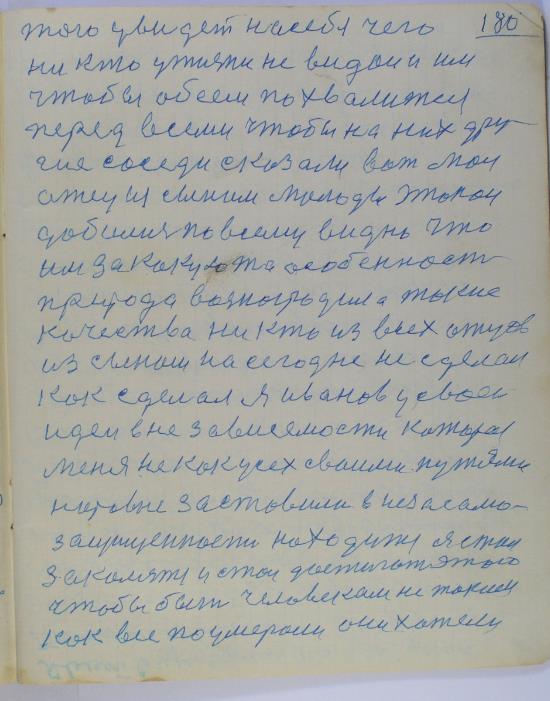 180
того увидет насебя чего
ни кто утияти не видаи и им
чтобы обеем похвалится
перед всеми чтобы на них дру
гие соседи сказали вот мол
отец и сыним молоды этокои
добился повсему видно что
им за какуюта особенност
природа вознаградила такие
качества ни кто из всех отцов
из сыном насегодне не сделал
как сделал я иванов у своеи
идеи вне зависемости которая
меня не как усех своими путями
натовне заставили в независамо-
защищенности находится я стал
закалятся и стал достигат этого
чтобы быт человекам не такием
как все поумерали они хотели